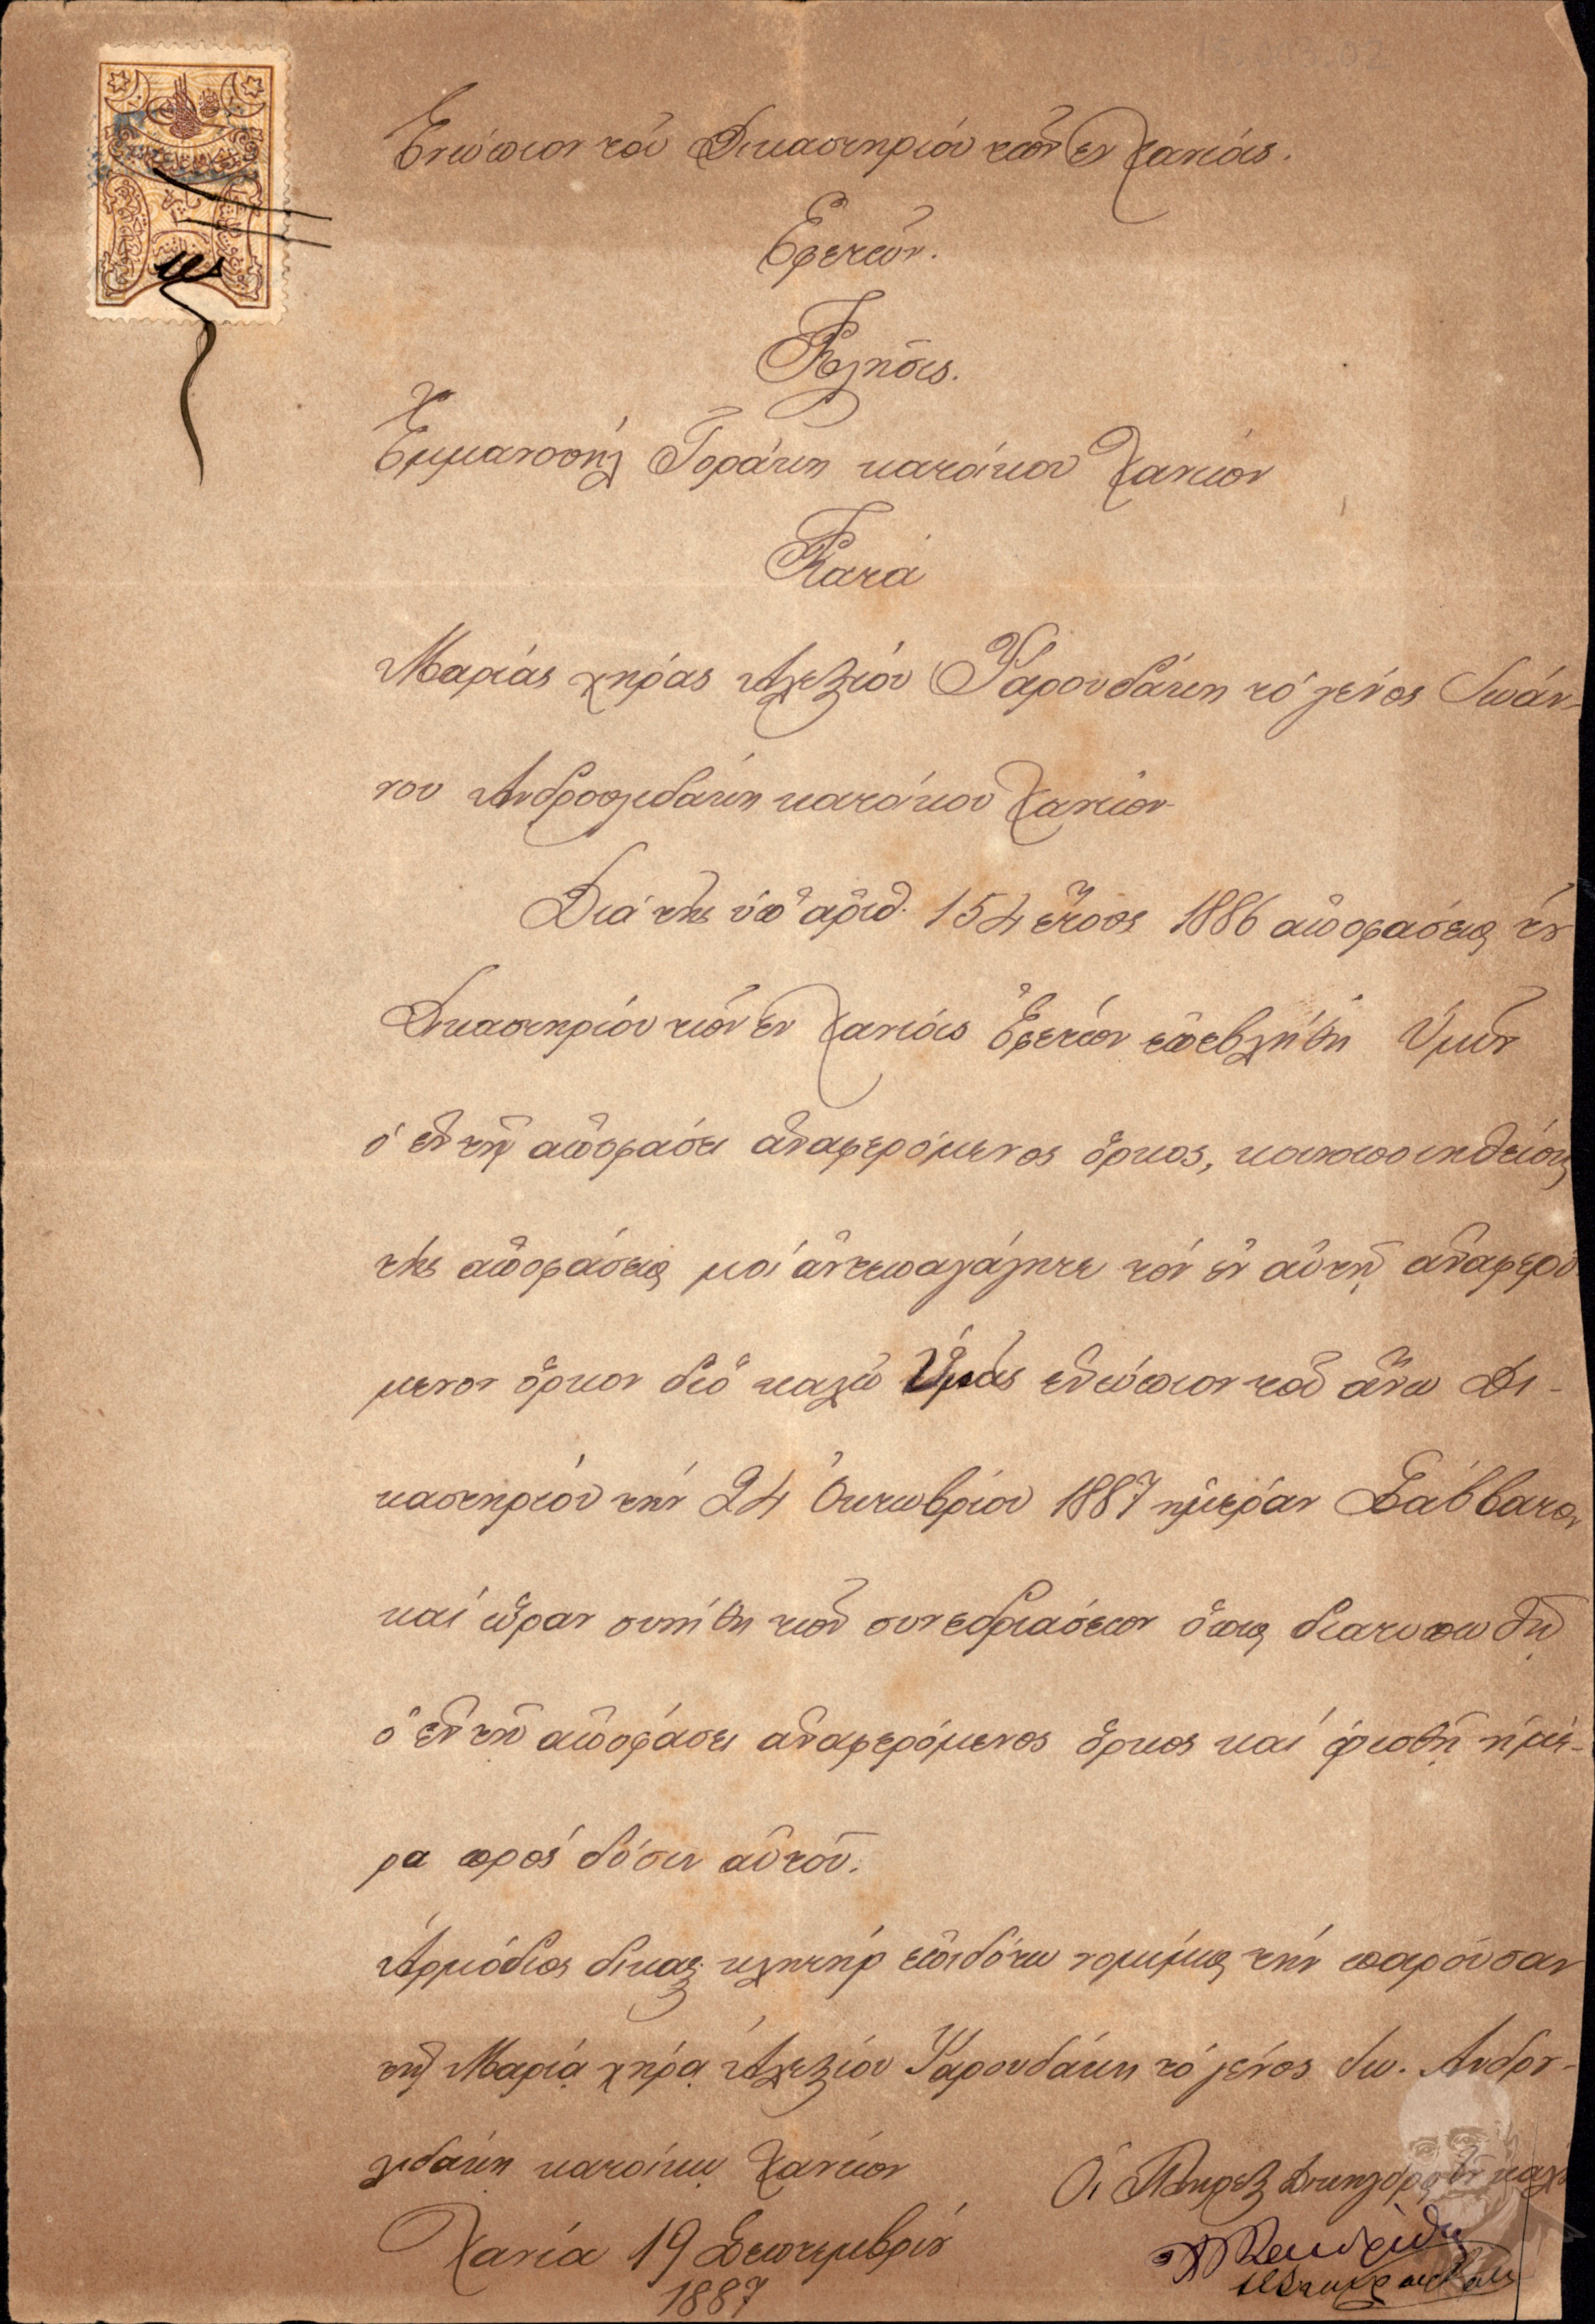 Ενώπιον του Δικαστηρίου των εν Χανίοις.
Εφετών.
Κλήσις.
Εμμανουήλ κατοίκου Χανίων
Κατά
Μαρίας χήρας Αλεξίου Ψαρουδάκη τό γένος Ιωάν-
νου Ανδρουλιδάκη κατοίκου Χανίων
Διά της ύπ' αριθ. 154 έτους 1886 αποφάσεως του
Δικαστηρίου των εν Χανίοις Εφετών επεβλήθη Υμίν
ό εν τη αποφάσει αναφερόμενος όρκος, κοινοποιηθείσης
της αποφάσεως μοί αντεπαγάγητε τόν εν αυτή αναφερό
μενον όρκον διό καλώ Υμάς ενώπιον του άνω Δι-
καστηρίου την 24 Οκτωβρίου 1887 ημέραν Σάββατον
καί ώραν συνήθη των συνεδριάσεων όπως διατυπωθή
ό εν τη αποφάσει αναφερόμενος όρκος καί ορισθή ημέ-
ρα πρός δόσιν αυτού.
Αρμόδιος δικας. κλητήρ επιδότω νομίμως την παρούσαν
τη Μαρία χήρα Αλεξίου Ψαρουδάκη τό γένος Ιω. Ανδρου-
λιδάκη κατοίκω Χανίων
Οι Πληρεξ Δικηγόροι του
Χανία 19 Σεπτεμβρίου
1887